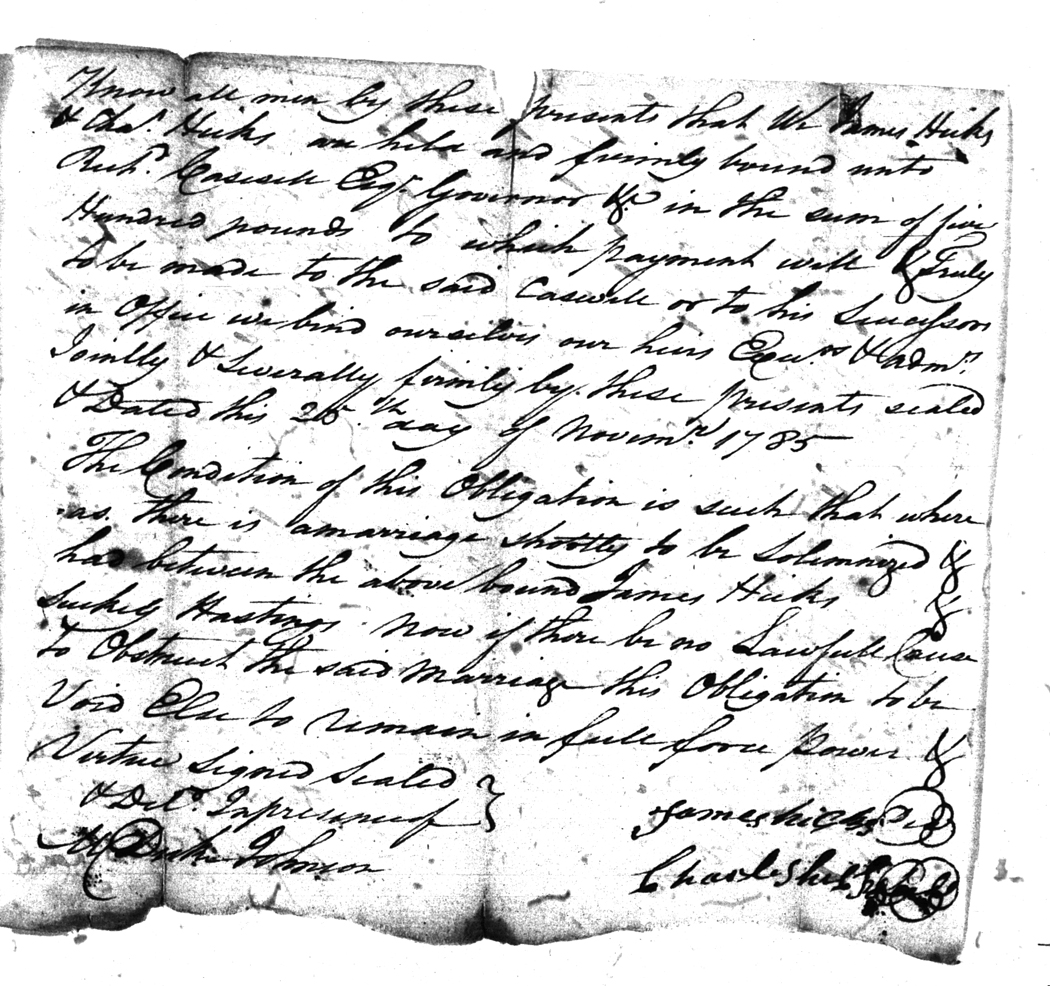 Know all men by these presents that We James Hicks
& Chas. Hicks are held and firmly bound unto
Richd. Caswell Esqr. Governor &c in the sum of five
Hundred pounds to which payment well & Truly
to be made to the said Caswell or to his Successors
in Office we bind ourselves our heirs Exeurs & adms.
Jointly & Severally firmly by these presents sealed
& Dated this 25th day of Novemr. 1785
The Condition of this Obligation is such that where
as there is a marriage shortly to be Solemnized &
had between the above bound James Hicks &
Suckey Hastings. Now if there be no Lawfull Cause
to Obstruct the said Marriage this Obligation to be
Void Else to remain in full force power &
Virtue Signed Sealed
& Deld. In presence of
James hicks
Johnson
Charles